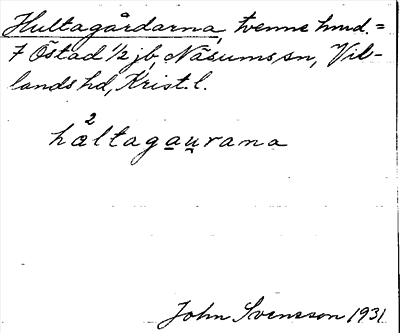 Hultagårdarna, tvenne hmd. =
7 Östad 1/2 jb, Näsums sn, Vil-
lands hd, Krist. l.
2
hæltagau̯rana
John Svensson 1931